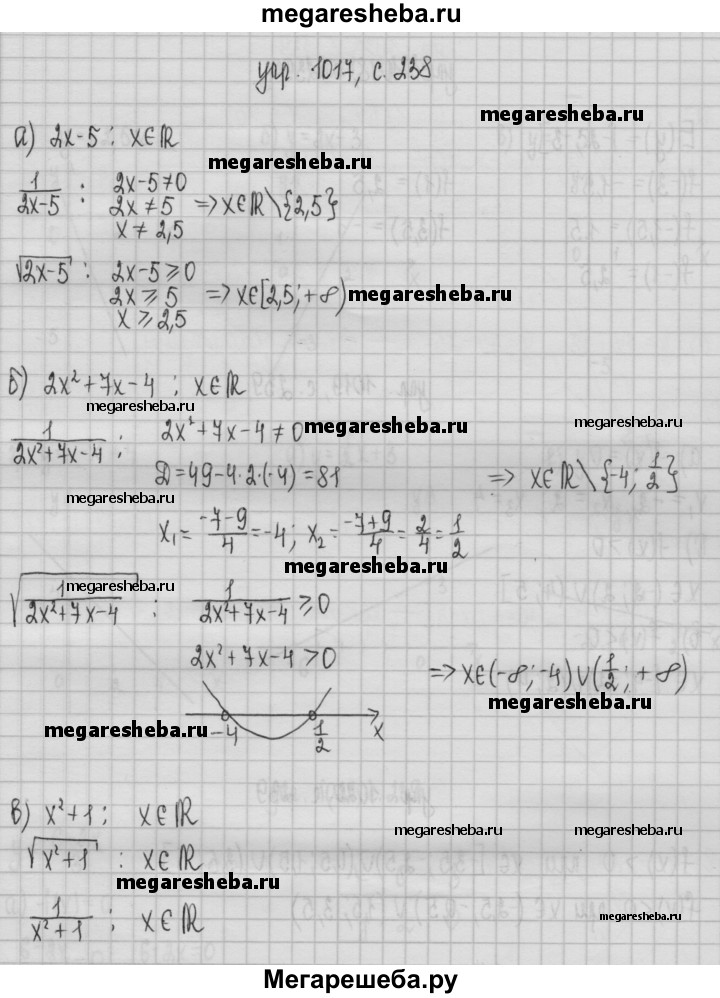 megaresheba.ru
упр. 1017, с. 238
megaresheba.ru
а) 2x-5 : x∈ℝ
megaresheba.ru
1/(2x-5) : 2x-5≠0
2x≠5 ⇒ x∈ℝ\{2,5}
x≠2,5
√(2x-5) : 2x-5⩾0
2x⩾5 ⇒ x∈[2,5; +∞) megaresheba.ru
x⩾2,5
б) 2x²+7x-4 ; x∈ℝ
megaresheba.ru
1/(2x²+7x-4) ; 2x²+7x-4≠0 megaresheba.ru megaresheba.ru
Д=49-4·2·(-4)=81 ⇒ x∈ℝ\{-4; 1/2}
megaresheba.ru
x₁=(-7-9)/4=-4; x₂=(-7+9)/4=2/4=1/2
megaresheba.ru
√(1/(2x²+7x-4)) : 1/(2x²+7x-4)⩾0
megaresheba.ru megaresheba.ru
2x²+7x-4>0 ⇒ x∈(-∞;-4)∪(1/2; +∞)
megaresheba.ru
megaresheba.ru -4 1/2 x
в) x²+1; x∈ℝ
megaresheba.ru megaresheba.ru
√(x²+1) : x∈ℝ
megaresheba.ru
1/(x²+1) ; x∈ℝ
megaresheba.ru
Мегарешеба.ру